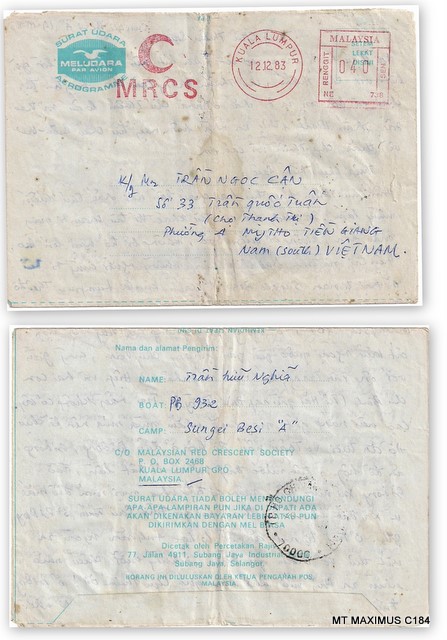 SURAT UDARA
MELUDARA
PAR AVION
AEROGRAMME
MRCS
KUALA LUMPUR
12.12.83
MALAYSIA
RINGGIT
SETEM
0 4 0
SEN
K/g Mr TRẦN NGỌC CẨN
Số 33 Trần quốc Tuấn
(Chợ Thạnh Trị)
Phường 4 MYTHO TIỀN GIANG
Nam (South) VIỆTNAM.
Nama dan alamat Pengirim:
NAME: Trần hữu Nghĩa
BOAT: PB 932
CAMP: Sungei Besi "A"
C/O MALAYSIAN RED CRESCENT SOCIETY
P. O. BOX 2488
KUALA LUMPUR GPO
MALAYSIA
SURAT UDARA TIADA BOLEH MENGANDUNGI
APA APA LAMPIRAN PUN JIKA DIDAPATI ADA
AKAN DIKENAKAN BAYARAN LEBIH ATAU PUN
DIKIRIMKAN DENGAN MEL BIASA
Dicetak oleh Percetakan
77 Jalan 4911, Subang Jaya Industrial
Subang Jaya, Selangor.
BORANG INI DILULUSKAN OLEH KETUA PENGARAH POS
MALAYSIA
MT MAXIMUS C184